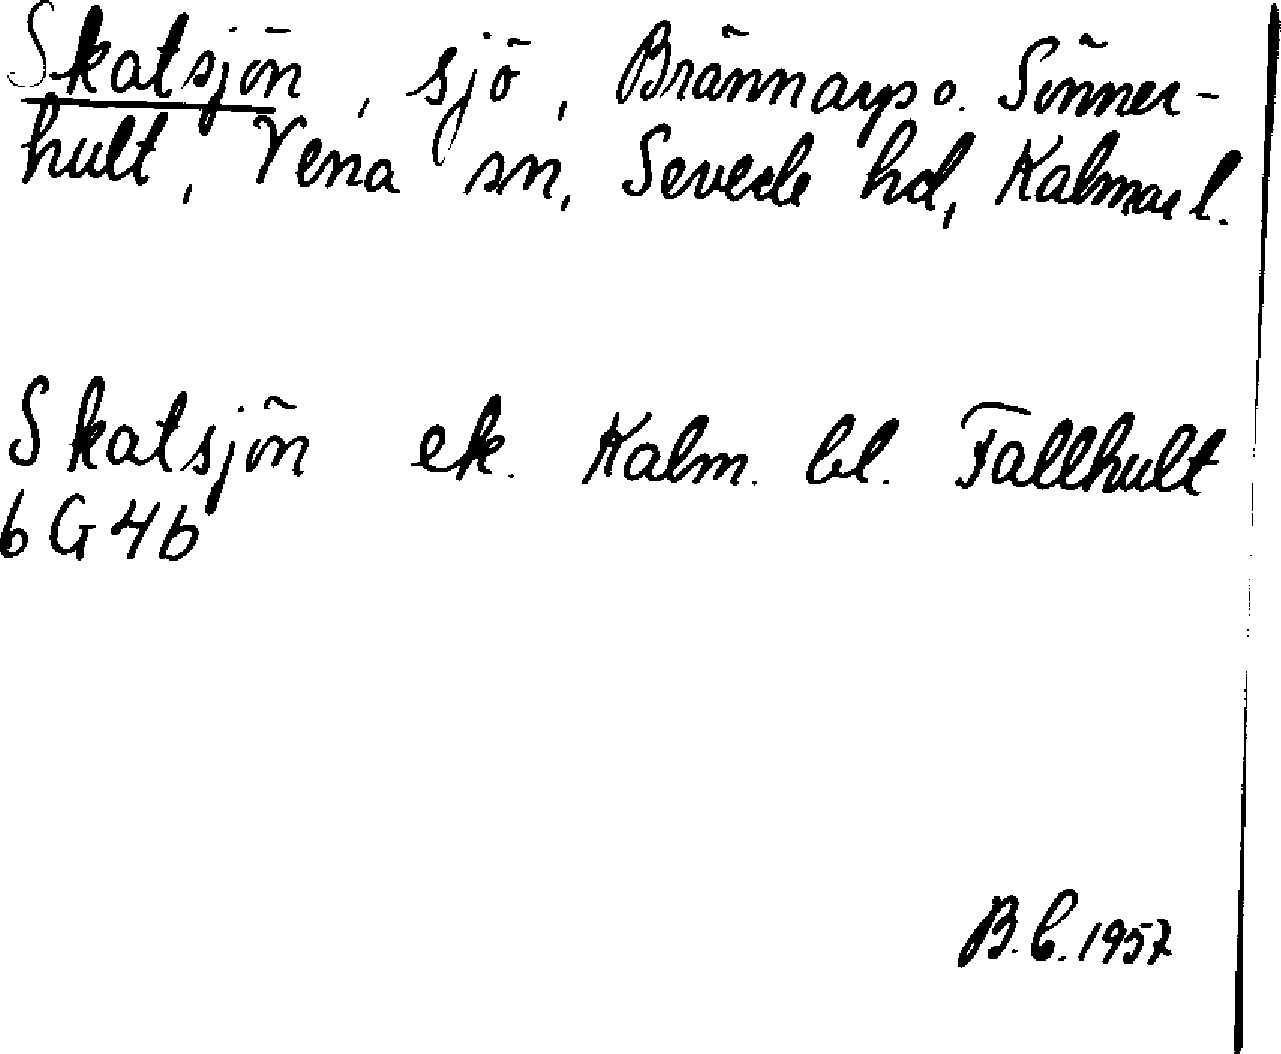 Skatsjön, sjö, Brännarp o. Sönner-
hult, Vena sn, Sevede hd, Kalmar l.
Skatsjön ek. Kalm. bl. Fallhult
6 G 4 b
B. C. 1957